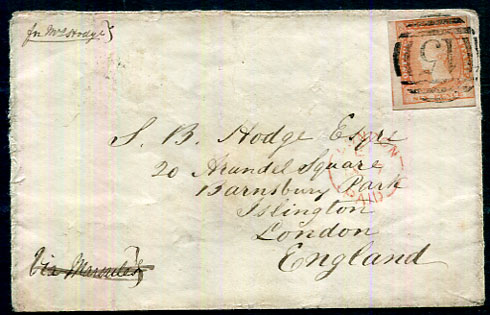 for Mrs Hodge
15
S. B. Hodge Esqre
20 Arundel Square
Barnsbury Park
Islington
London
England
PAID
Via Marseilles